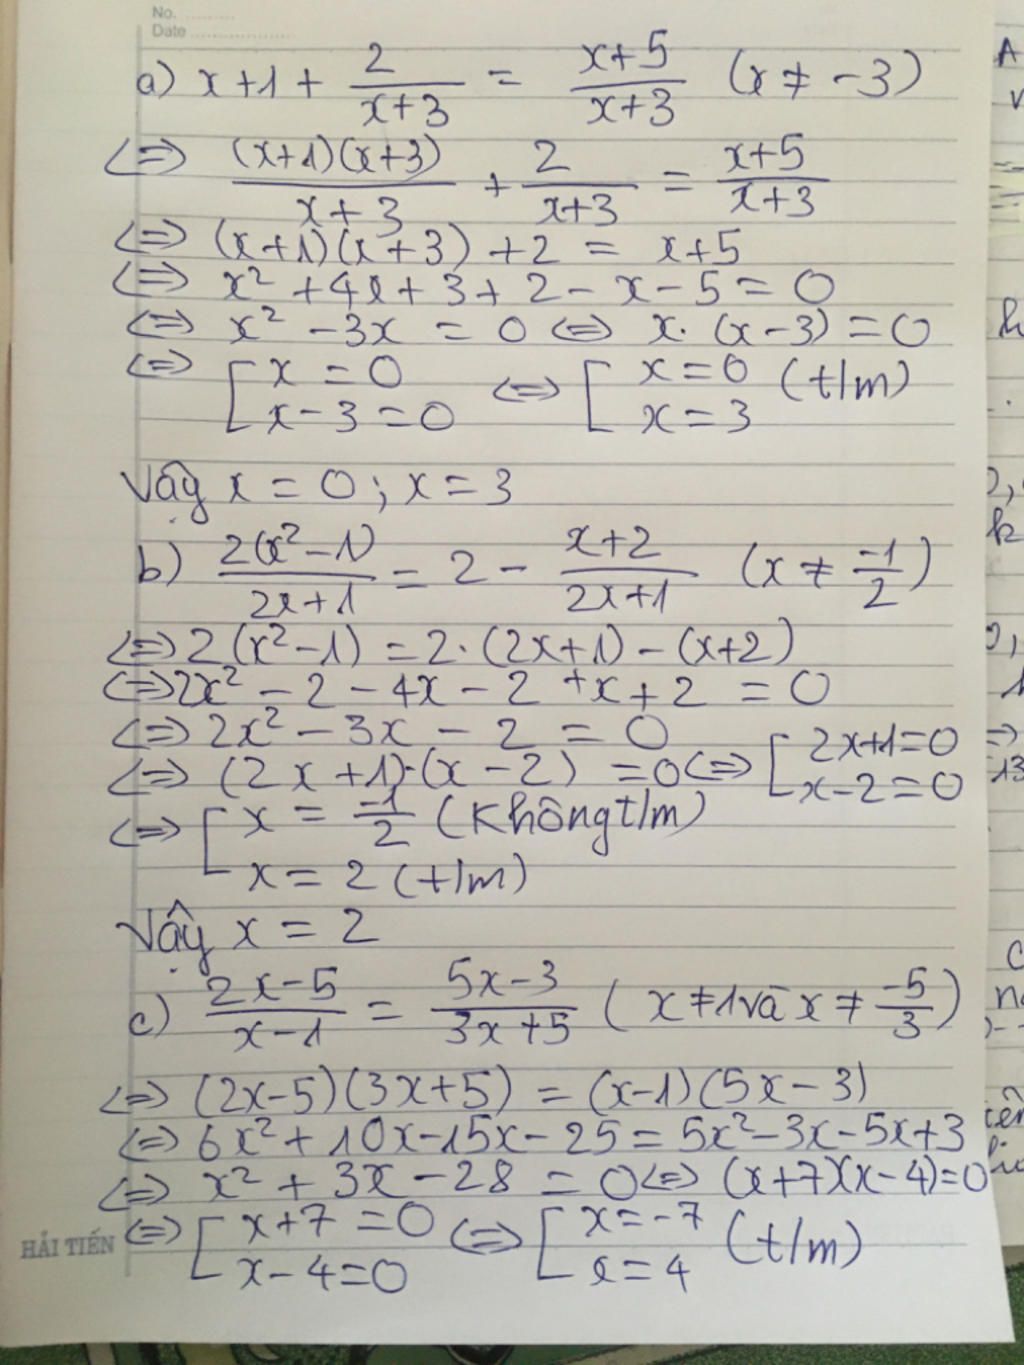 No. ..........
Date ..................
a) x+1+ 2/(x+3) = (x+5)/(x+3) (x ≠ -3)
<=> (x+1)(x+3)/(x+3) + 2/(x+3) = (x+5)/(x+3)
<=> (x+1)(x+3) +2 = x+5
<=> x² +4x+3+2-x-5=0
<=> x² -3x = 0 <=> x.(x-3)=0
<=> [x=0 / x-3=0 <=> [x=0 / x=3 (t/m)
Vậy x=0; x=3
b) 2(x²-1)/(2x+1) = 2 - (x+2)/(2x+1) (x ≠ -1/2)
<=> 2(x²-1) = 2.(2x+1) - (x+2)
<=> 2x² -2-4x-2+x+2 = 0
<=> 2x² -3x-2 = 0
<=> (2x+1).(x-2) =0 <=> [2x+1=0 / x-2=0
<=> [x = -1/2 (Không t/m) / x=2 (t/m)
Vậy x = 2
c) (2x-5)/(x-1) = (5x-3)/(3x+5) (x≠1 và x ≠ -5/3)
<=> (2x-5)(3x+5) = (x-1)(5x-3)
<=> 6x²+10x-15x-25=5x²-3x-5x+3
<=> x²+3x-28 = 0 <=> (x+7)(x-4)=0
<=> [x+7=0 / x-4=0 <=> [x=-7 / x=4 (t/m)
HẢI TIẾN